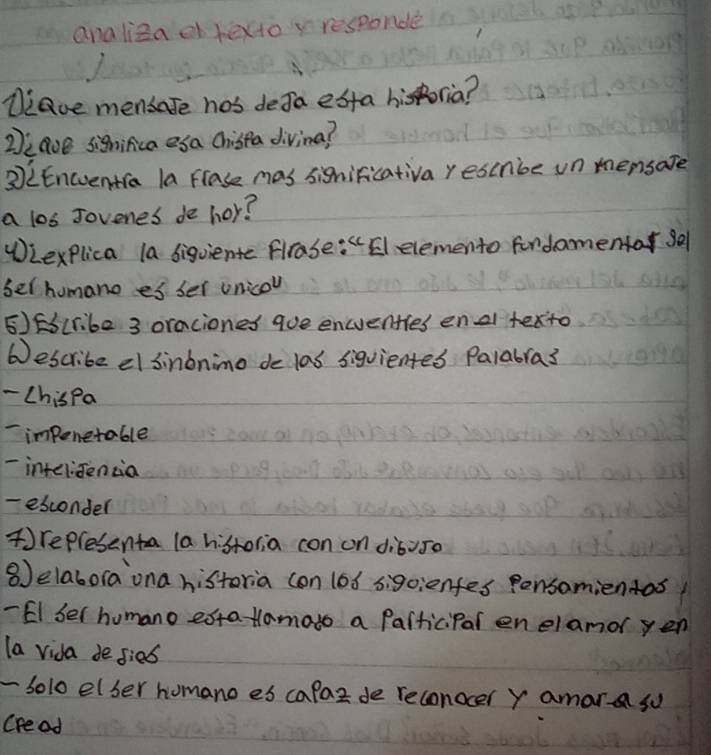 analiza el texto y responde
1)¿Que mensaje nos deja esta historia?
2)¿que significa esa chispa divina?
3)¿Encuentra la frase mas significativa y escribe un mensaje
a los Jovenes de hoy?
4)¿explica la siguiente flrase: "El elemento fundamental del
ser humano es ser unico"
5) Escribe 3 oraciones que encuentres en el texto
6) escribe el sinónimo de las siguientes Palabras
- Chispa
- impenetable
- inteligencia
- esconder
7) representa la historia con un dibujo
8) elabora una historia con los siguientes Pensamientos
- El ser humano esta llamado a Participar en el amor y en
la vida de dios
- solo el ser humano es capaz de reconocer y amar a su
cread